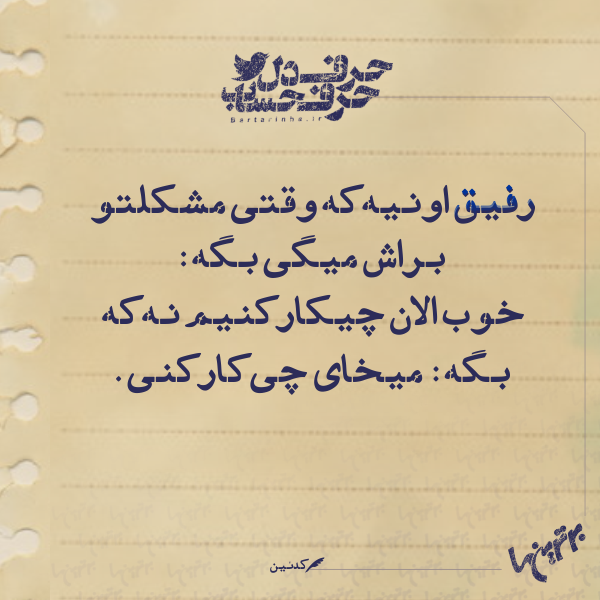 حرف دل
حرف حساب
Bartarinha.ir
رفیق اونیه که وقتی مشکلتو
براش میگی بگه:
خوب الان چیکار کنیم نه که
بگه: میخای چی کار کنی.
کدنین
برترین‌ها